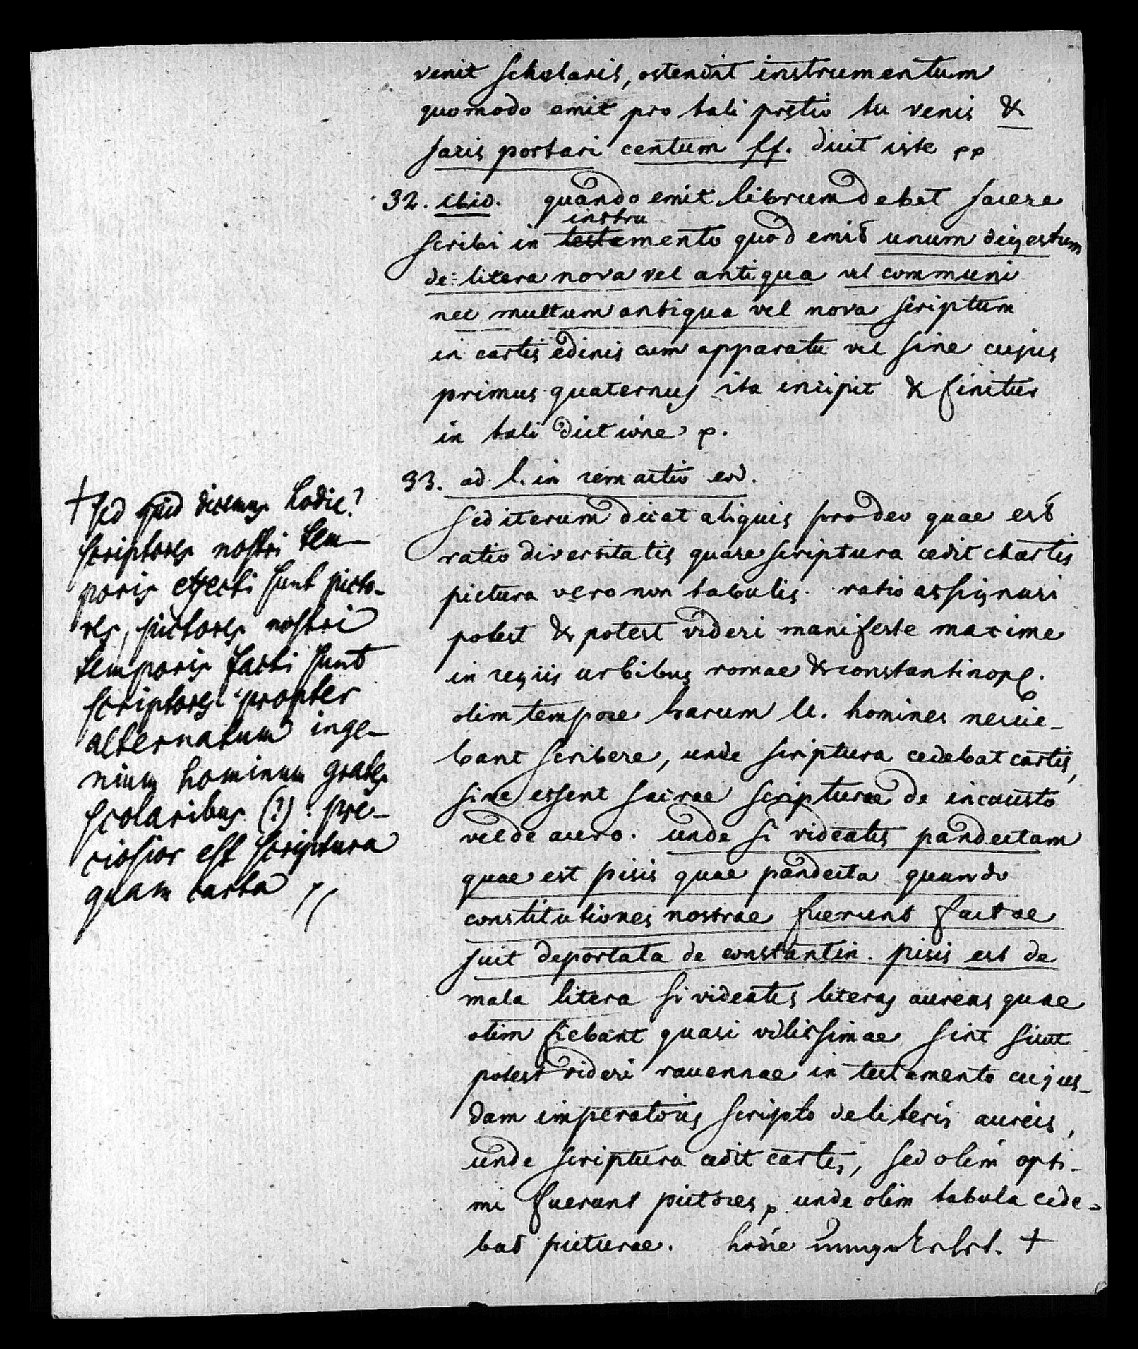 venit scholaris, ostendit instrumentum
quomodo emit pro tali pretio tu venis &
facis portari centum ff. dicit iste pp
32. ibid. quando emit librum debet facere
instru
scribi in testemento quod emit unum digestum
de litera nova vel antiqua vel communi
nec multum antiqua vel nova scriptum
in cartis edinis cum apparatu vel sine cujus
primus quaternus ita incipit & finitur
in tali dictione p.
33. ad l. in rem actio
sed iterum dicat aliquis pro deo quae est
ratio diversitatis quare scriptura cedit chartis
pictura vero non tabulis. ratio assignari
potest & potest videri manifeste maxime
in regiis urbibus romae & constantinop.
olim tempore harum ll. homines nescie-
bant scribere, unde scriptura cedebat cartis,
sive essent sacrae scripturae de incausto
vel de auro. unde si videatis pandectam
quae est pisis quae pandecta quando
constitutiones nostrae fuerunt factae
fuit deportata de constantin. pisis est de
mala litera si videatis literas aureas quae
olim fiebant quasi vilissimae sint sicut
potest videri ravennae in testamento cujus-
dam imperatoris scripto de literis aureis,
unde scriptura cedit cartis, sed olim opti-
mi fuerunt pictores, unde olim tabula cede-
bat picturae. hodie +
+ sed quid dicemus hodie?
scriptores nostri tem-
poris effecti sunt picto-
res, pictores nostri
temporis facti sunt
scriptores propter
alternatum inge-
nium hominum
scolaribus (?). pre-
ciosior est scriptura
quam carta